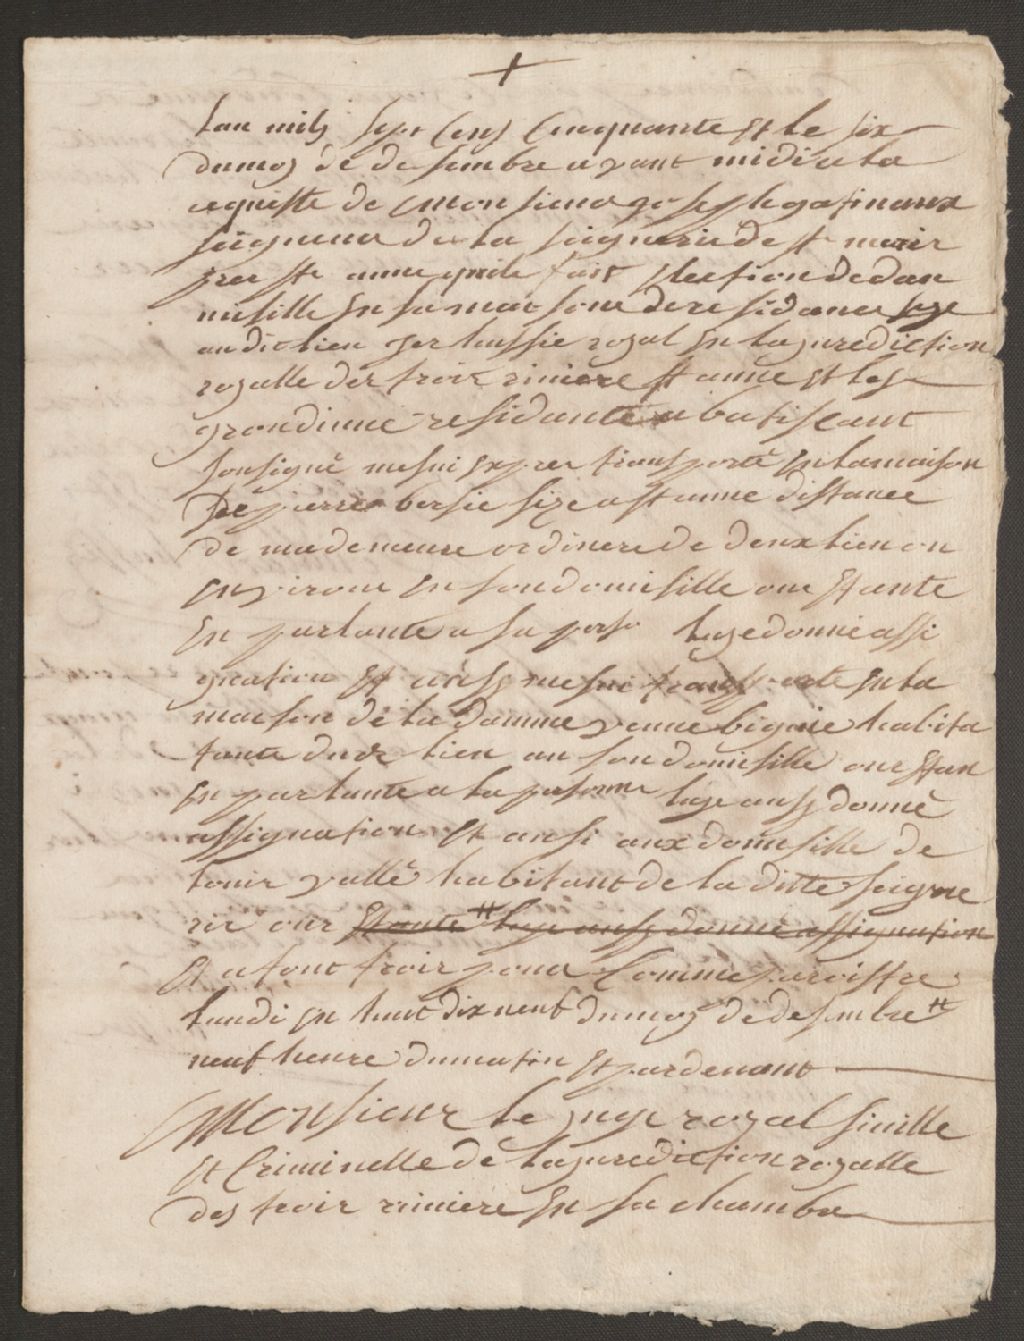 +
Lan mils sept Cens Cinquante et le six
dumois de desembre avant midi a la
requiste de Monsieur joseph gatineaux
seigneur de la seignerie de st marie
pres ste anne quile fait Election de dan
misille en sa maisone de residance size
au dit lieu per lussié royal en la jurediction
royalle des troix riviere st anne et les
grondinne residante a batiscant
sousigné mesui exprer transporté en la maison
De pierre bersie size a st anne distance
de ma demeure ordinere de deux lieu ou
environ en son domisille ou Etante
En parlante a sa perso laye donné assi
gnation et aussy mesui transporte en la
maison de la damme yanne bignie habita
tante dudt lieu au son domisille our Etan
En parlante a la persone laye aussy donné
assignation et ausi aux domisille de
louir vallé habitant de la ditte seigne
rie our Etante # laye aussy donné assignation
Et a tout troix pour Comme paroistre
lundi en huit dix neuf dumois de desembre #
neuf heure dumatin et pardevant
Monsieur le juge royal siville
et Criminelle de la jurediction royalle
des troix riviere En sa chambe